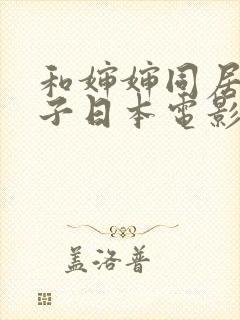 和婶婶同居
子日本电影
盖洛普